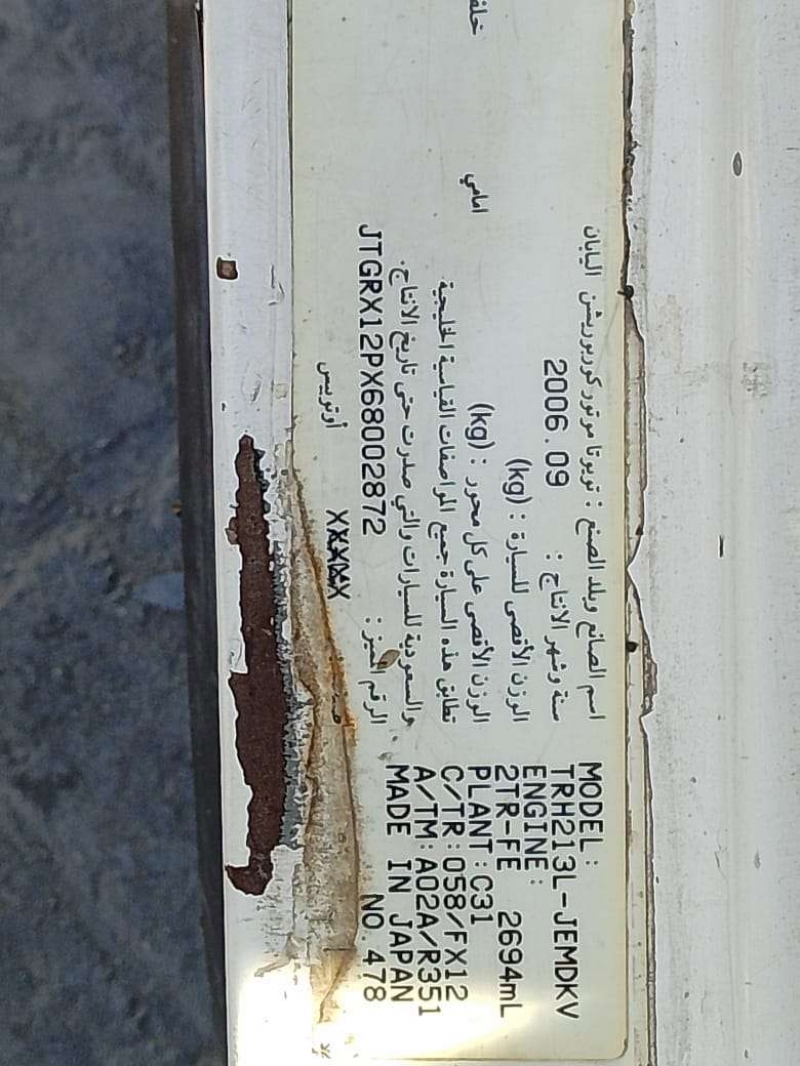 اسم الصانع وبلد الصنع : تويوتا موتور كوربوريشن اليابان
سنة وشهر الانتاج : 2006.09
الوزن الأقصى للسيارة : (kg)
الوزن الأقصى على كل محور : (kg) امامي خلف
تطابق هذه السيارة جميع المواصفات القياسية الخليجية
والسعودية للسيارات والتي صدرت حتى تاريخ الانتاج.
الرقم المميز : JTGRX12PX68002872
XXXXX أوتوبيس
MODEL:
TRH213L-JEMDKV
ENGINE:
2TR-FE 2694mL
PLANT:C31
C/TR:058/FX12
A/TM:A02A/R351
MADE IN JAPAN
NO.478